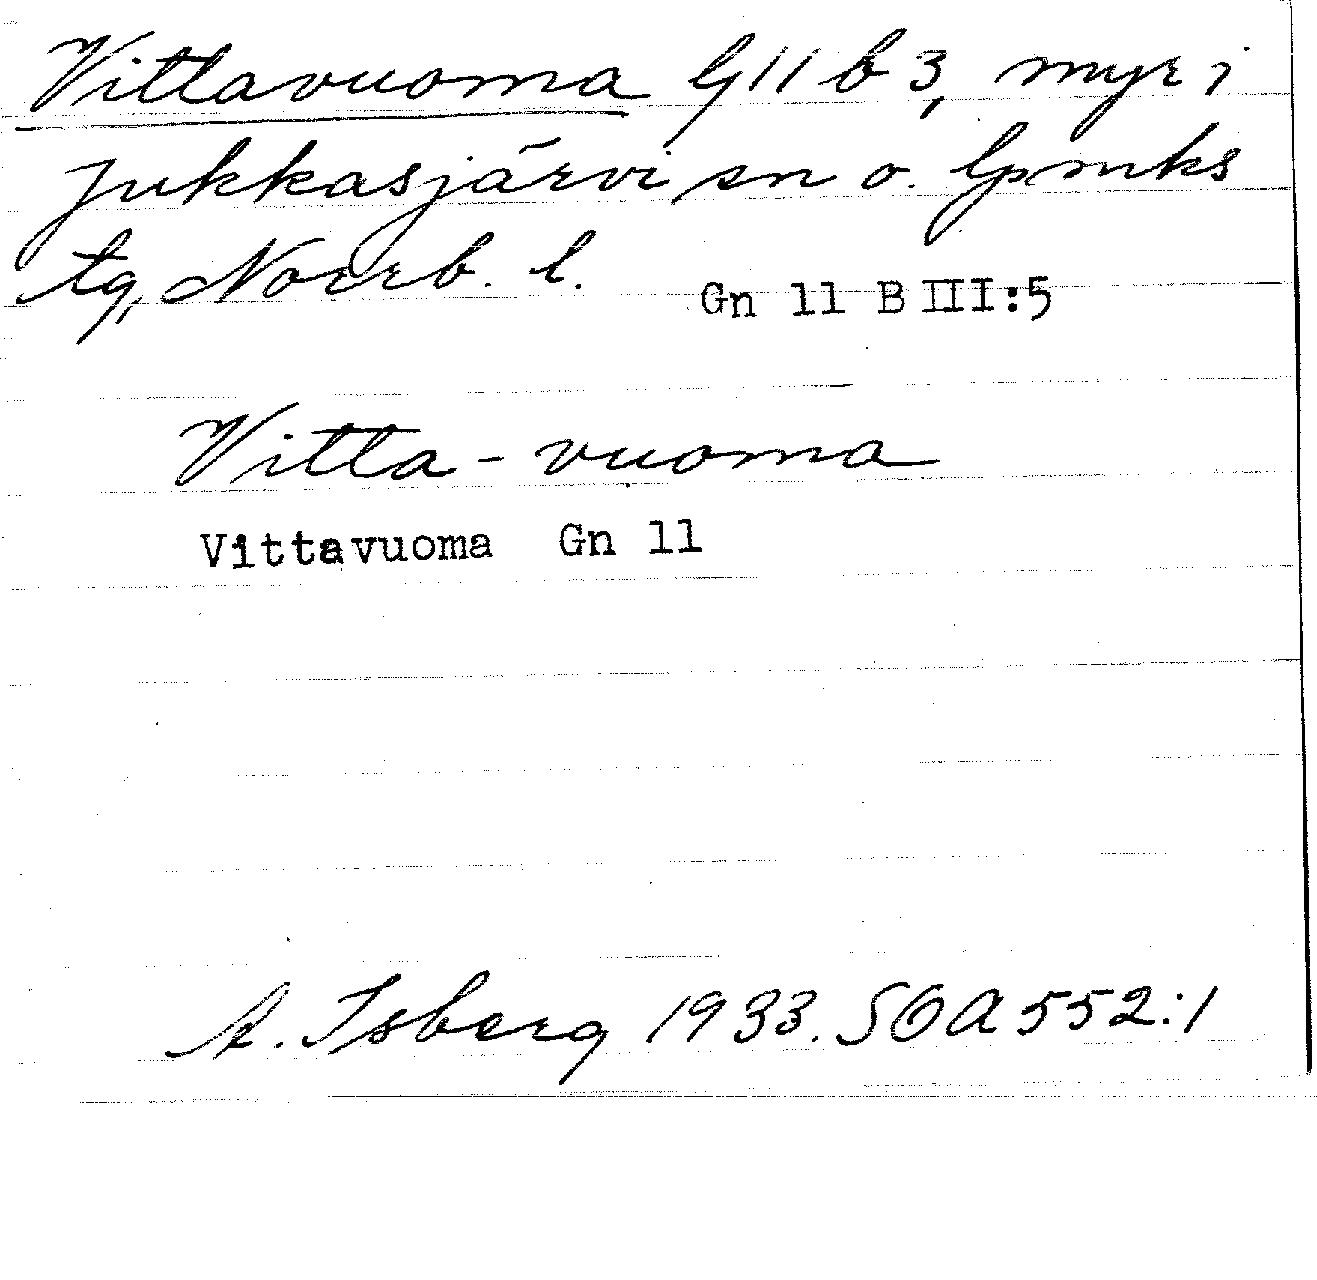 Vittavuoma G 11 b 3, myr i
Jukkasjärvi sn o. lpmks
tg, Norrb. l.
Gn 11 B III:5
Vitta-vuoma
Vittavuoma Gn 11
A. Isberg 1933. SOA 552:1